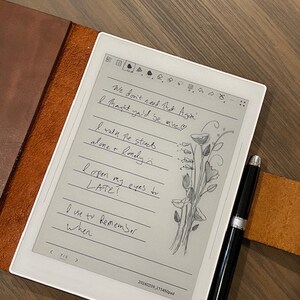 We don't need that Again
I thought you'd be mine
I walk the streets
alone + lonely
I open my eyes to
LATE!
I use to Remember
when